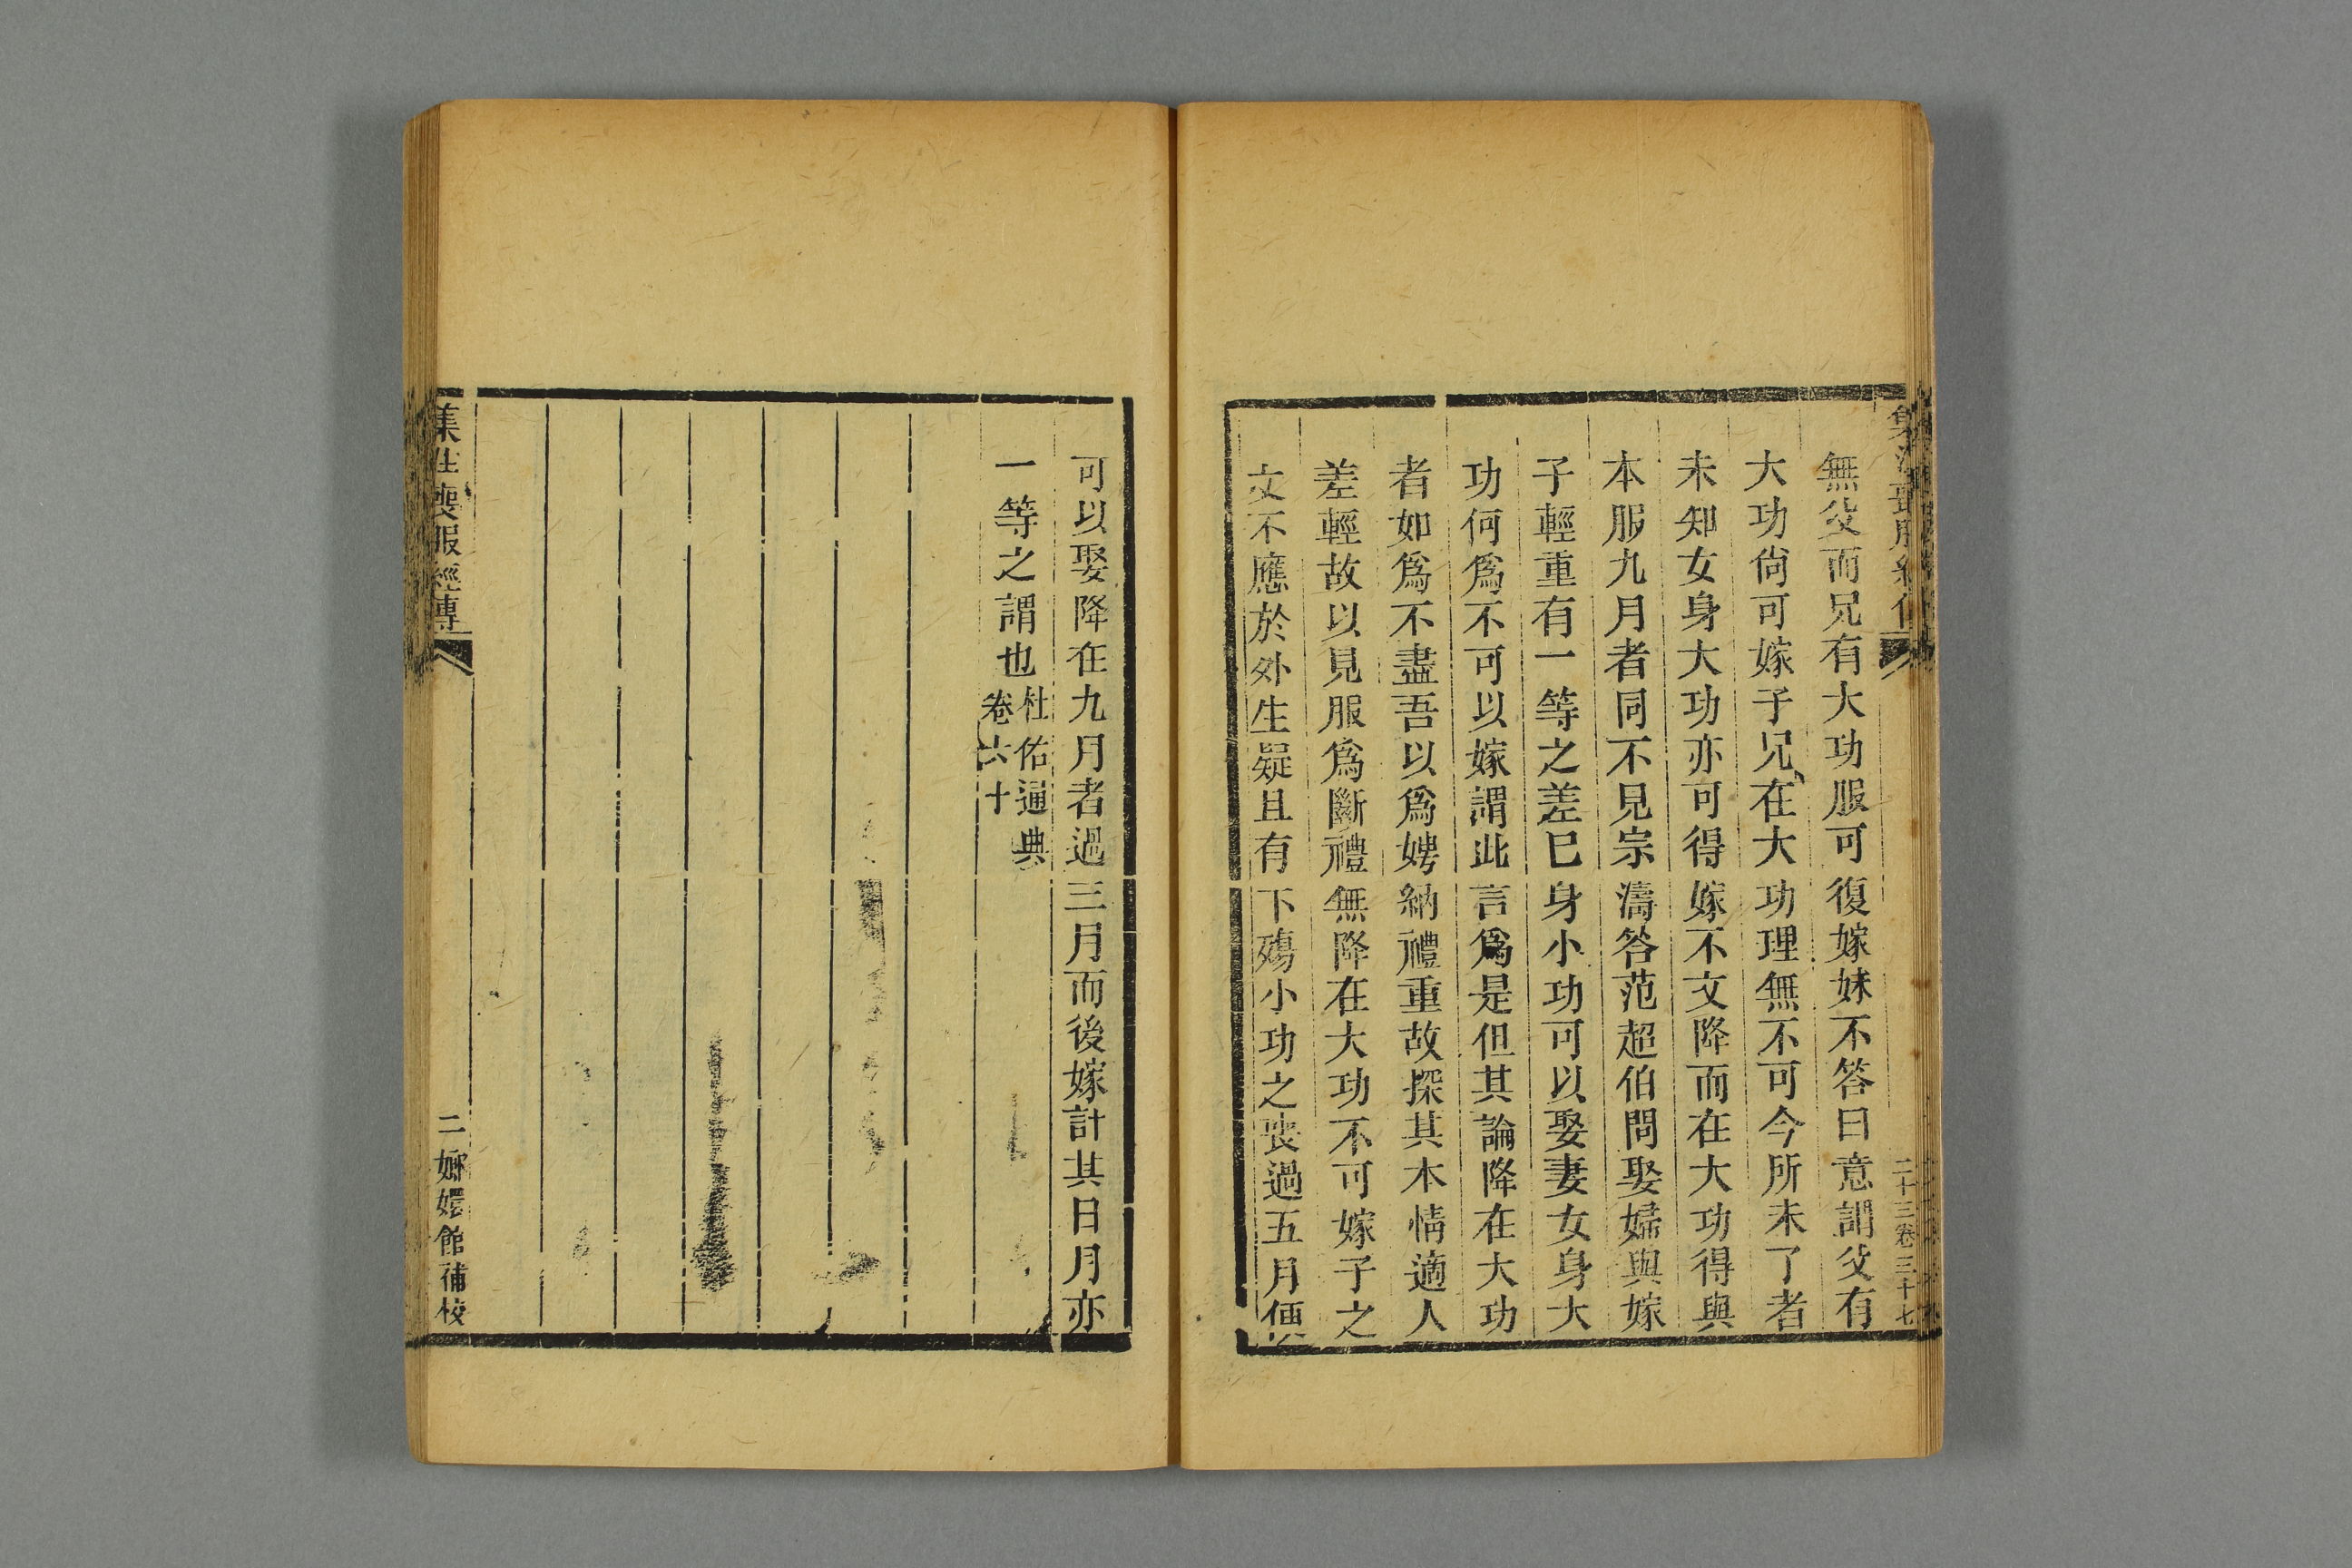 無父而兄有大功服可復嫁妹不答曰意謂父有
大功尙可嫁子兄在大功理無不可今所未了者
未知女身大功亦可得嫁不文降而在大功得與
本服九月者同不見宗濤答范超伯問娶婦與嫁
子輕重有一等之差巳身小功可以娶妻女身大
功何爲不可以嫁謂此言爲是但其論降在大功
者如爲不盡吾以爲娉納禮重故探其本情適人
差輕故以見服爲斷禮無降在大功不可嫁子之
文不應於外生疑且有下殤小功之喪過五月便
二十三卷三十七
可以娶降在九月者過三月而後嫁計其日月亦
一等之謂也杜佑通典
卷六十
集注喪服經傳
二嫏嬛館補校